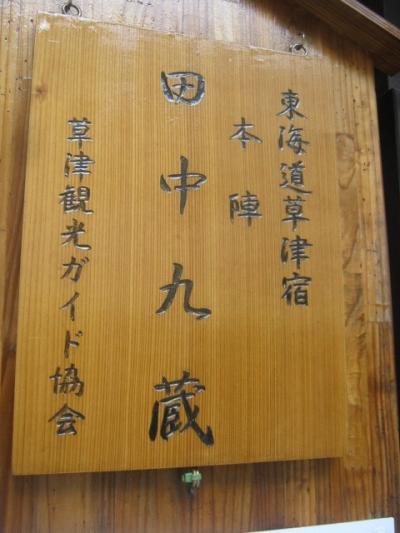 東海道草津宿
本陣
田中九蔵
草津観光ガイド協会